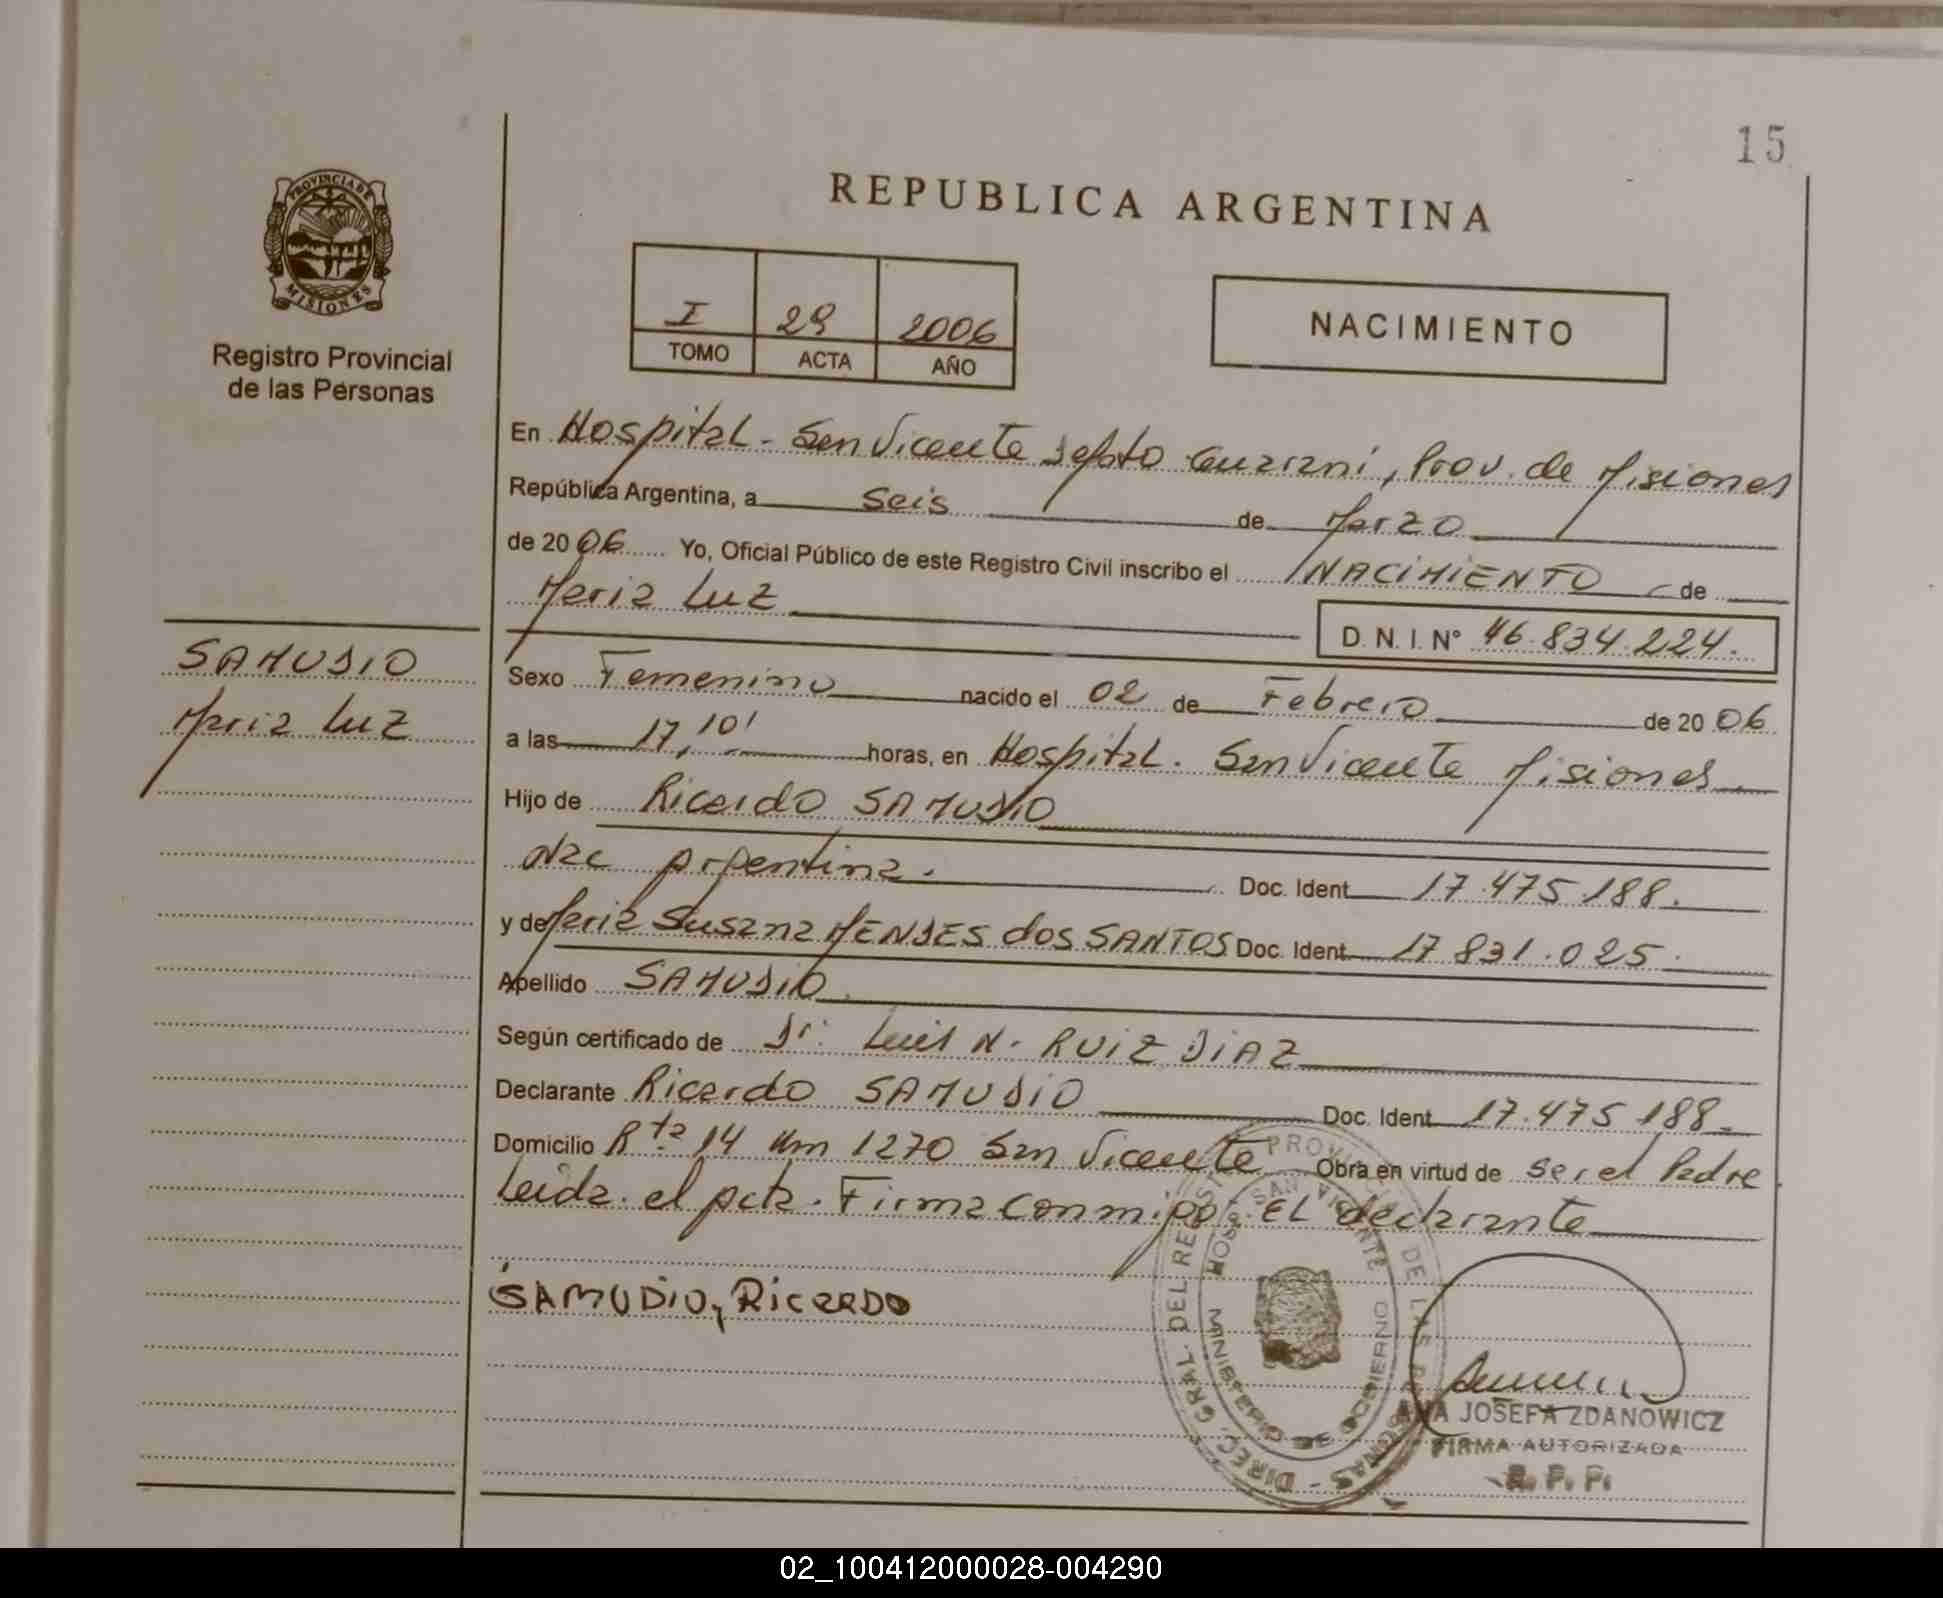 15
REPUBLICA ARGENTINA
PROVINCIA DE
MISIONES
Registro Provincial
de las Personas
I 29 2006
TOMO ACTA AÑO
NACIMIENTO
En Hospital - San Vicente depto Guarani, Prov. de Misiones
República Argentina, a seis de Marzo
de 2006 Yo, Oficial Público de este Registro Civil inscribo el NACIMIENTO de
Maria Luz D. N. I. N° 46.834.224.
SAMUDIO
Maria Luz
Sexo Femenino nacido el 02 de Febrero de 2006
a las 17,10' horas, en Hospital. San Vicente Misiones
Hijo de Ricardo SAMUDIO
Nac Argentina. Doc. Ident. 17.475.188.
y de Maria Susana MENDES dos SANTOS Doc. Ident. 17 831.025.
Apellido SAMUDIO
Según certificado de Dr. Luis N. RUIZ DIAZ
Declarante Ricardo SAMUDIO Doc. Ident. 17.475 188.
Domicilio Rta 14 Km 1270 San Vicente Obra en virtud de ser el Padre
Leida el acta. Firma conmigo EL declarante
SAMUDIO, RICARDO
DIREC. GRAL. DEL REGISTRO PROVINCIAL DE LAS PERSONAS
HOSP. SAN VICENTE
MINISTERIO DE GOBIERNO
ANA JOSEFA ZDANOWICZ
FIRMA AUTORIZADA
R. P. P.
02_100412000028-004290